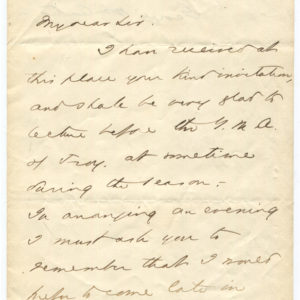 My dear Sir.
I have received at
this place your kind invitation,
and shall be very glad to
lecture before the Y. M. A.
of Troy. at sometime
during the season.-
In arranging an evening
I must ask you to
remember that I would
prefer to come late in